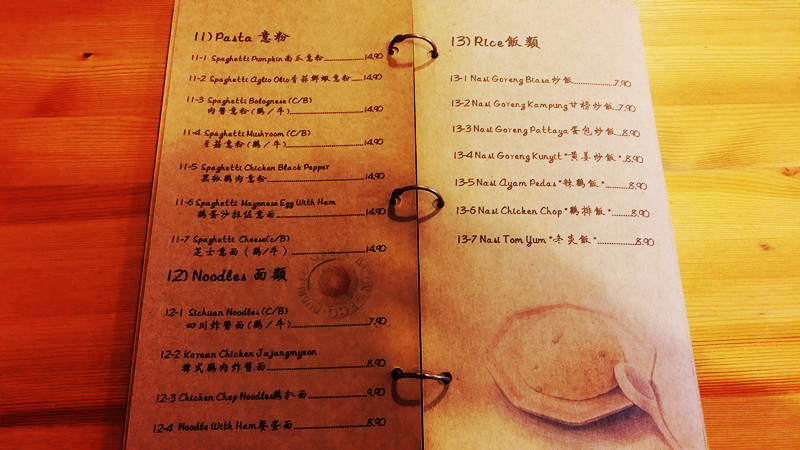 11) Pasta 意粉
11-1 Spaghetti Pumpkin 南瓜意粉 14.90
11-2 Spaghetti Aglio Olio 香蒜鮮蝦意粉 14.90
11-3 Spaghetti Bolognese (C/B)
肉醬意粉 (鷄/牛) 14.90
11-4 Spaghetti Mushroom (C/B)
蘑菇意粉 (鷄/牛) 14.90
11-5 Spaghetti Chicken Black Pepper
黑椒鷄肉意粉 14.90
11-6 Spaghetti Mayonese Egg With Ham
鷄蛋沙拉佐意面 14.90
11-7 Spaghetti Cheese(c/B)
芝士意面 (鷄/牛) 14.90
12) Noodles 面類
12-1 Sichuan Noodles (C/B)
四川炸醬面 (鷄/牛) 7.90
12-2 Korean Chicken Jajangmyeon
韓式鷄肉炸醬面 8.90
12-3 Chicken Chop Noodles鷄扒面 9.90
12-4 Noodle With Ham餐蛋面 8.90
13) Rice 飯類
13-1 Nasi Goreng Biasa 炒飯 7.90
13-2 Nasi Goreng Kampung 甘榜炒飯 7.90
13-3 Nasi Goreng Pattaya 蛋包炒飯 8.90
13-4 Nasi Goreng Kunyit "黄姜炒飯" 8.90
13-5 Nasi Ayam Pedas "辣鷄飯" 8.90
13-6 Nasi Chicken Chop "鷄排飯" 8.90
13-7 Nasi Tom Yum "冬炎飯" 8.90